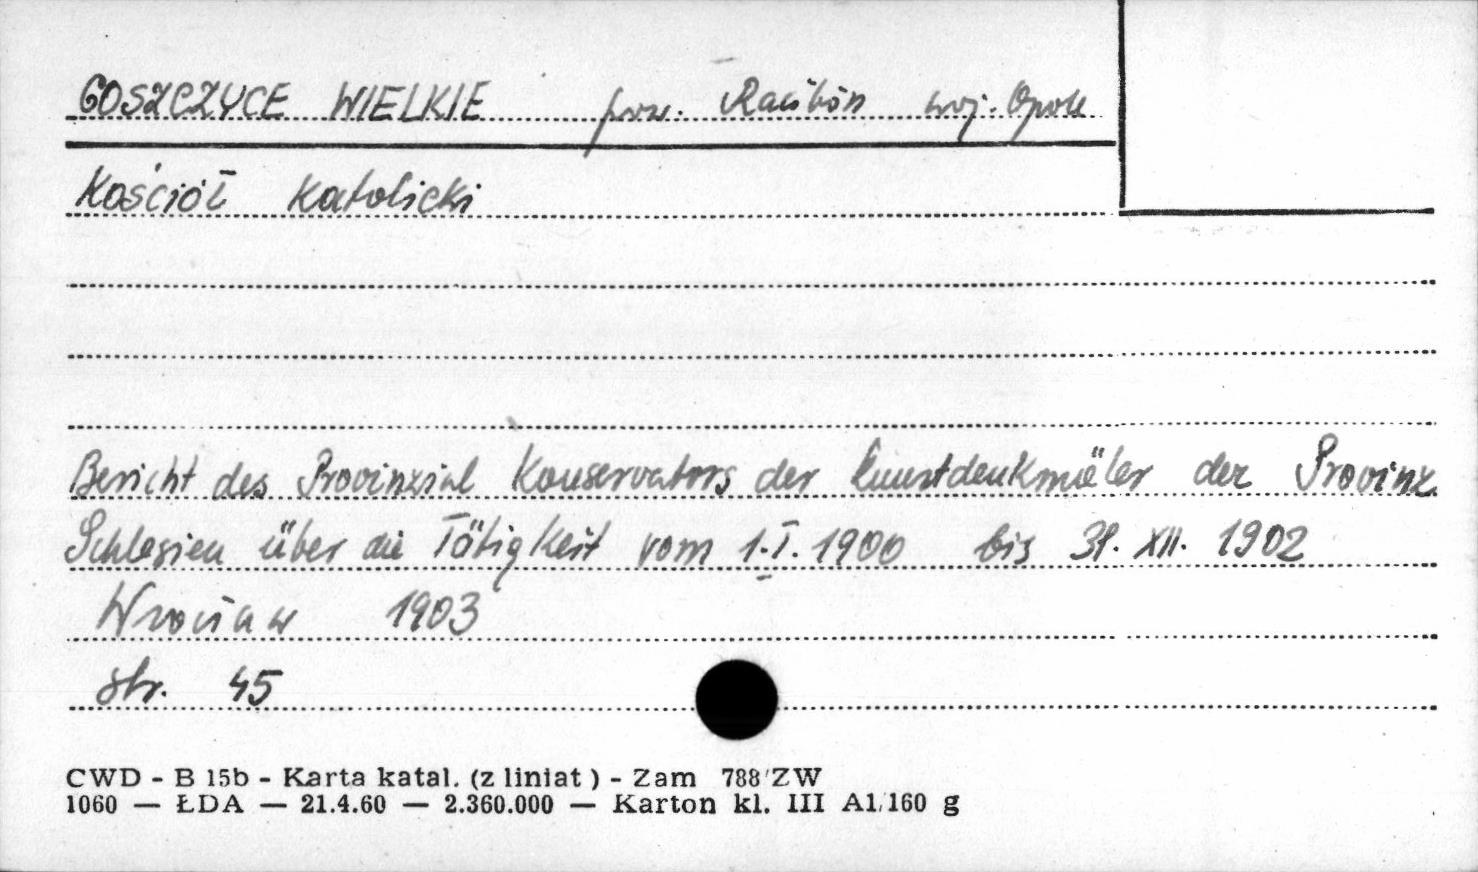 GOSZCZYCE WIELKIE pow. Racibórz woj. Opole
Kościół Katolicki
Bericht des Provinzial Konservators der Kunstdenkmäler der Provinz
Schlesien über die Tätigkeit vom 1.I.1900 bis 31.XII.1902
Wrocław 1903
str. 45
CWD - B 15b - Karta katal. (z liniat) - Zam 788/ZW
1060 — ŁDA — 21.4.60 — 2.360.000 — Karton kl. III A1/160 g